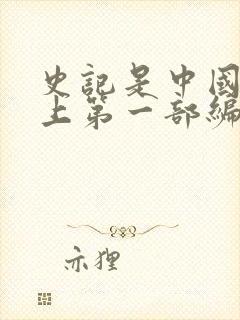 史記是中國
上第一部編
亦狸